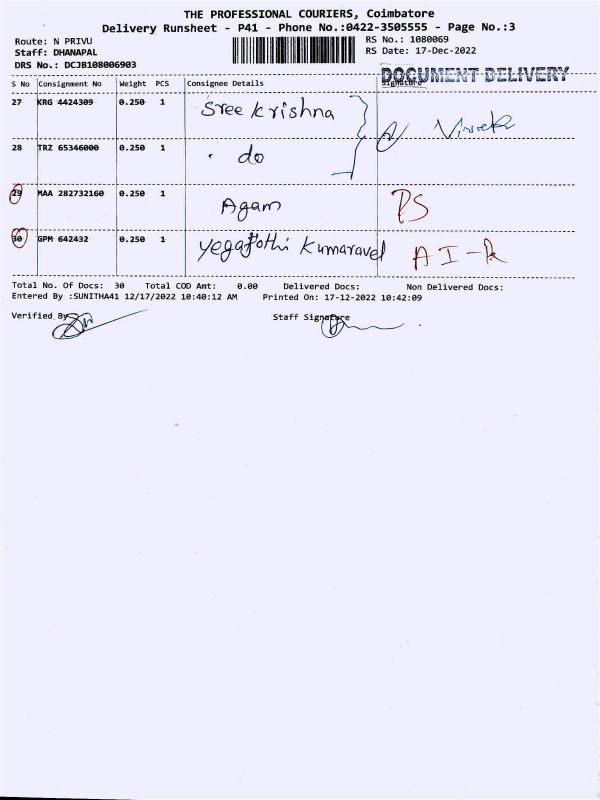 THE PROFESSIONAL COURIERS, Coimbatore
Delivery Runsheet - P41 - Phone No.:0422-3505555 - Page No.:3
Route: N PRIVU RS No.: 1080069
Staff: DHANAPAL RS Date: 17-Dec-2022
DRS No.: DCJB108006903
DOCUMENT DELIVERY
S No Consignment No Weight PCS Consignee Details Signature
27 KRG 4424309 0.250 1 Sree Krishna Vivek
28 TRZ 65346000 0.250 1 do
29 MAA 282732160 0.250 1 Agam PS
30 GPM 642432 0.250 1 Kumaravel A I-R
Total No. Of Docs: 30 Total COD Amt: 0.00 Delivered Docs: Non Delivered Docs:
Entered By :SUNITHA41 12/17/2022 10:40:12 AM Printed On: 17-12-2022 10:42:09
Verified By Staff Signature